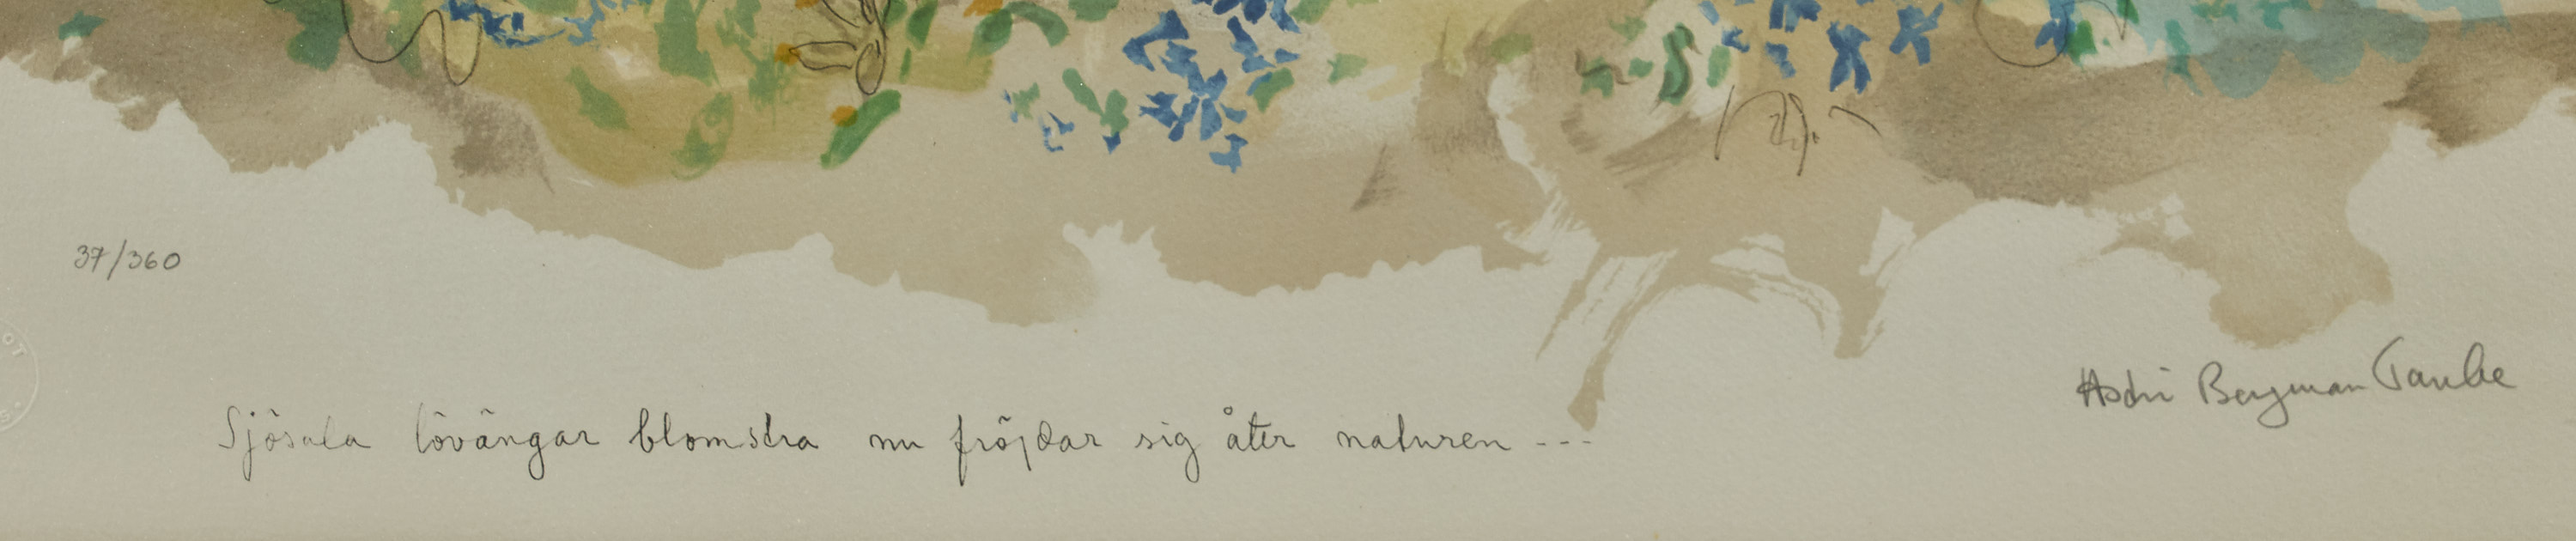 37/360
OT
Sjösala lövängar blomstra nu fröjdar sig åter naturen ---
Astri Bergman Taube